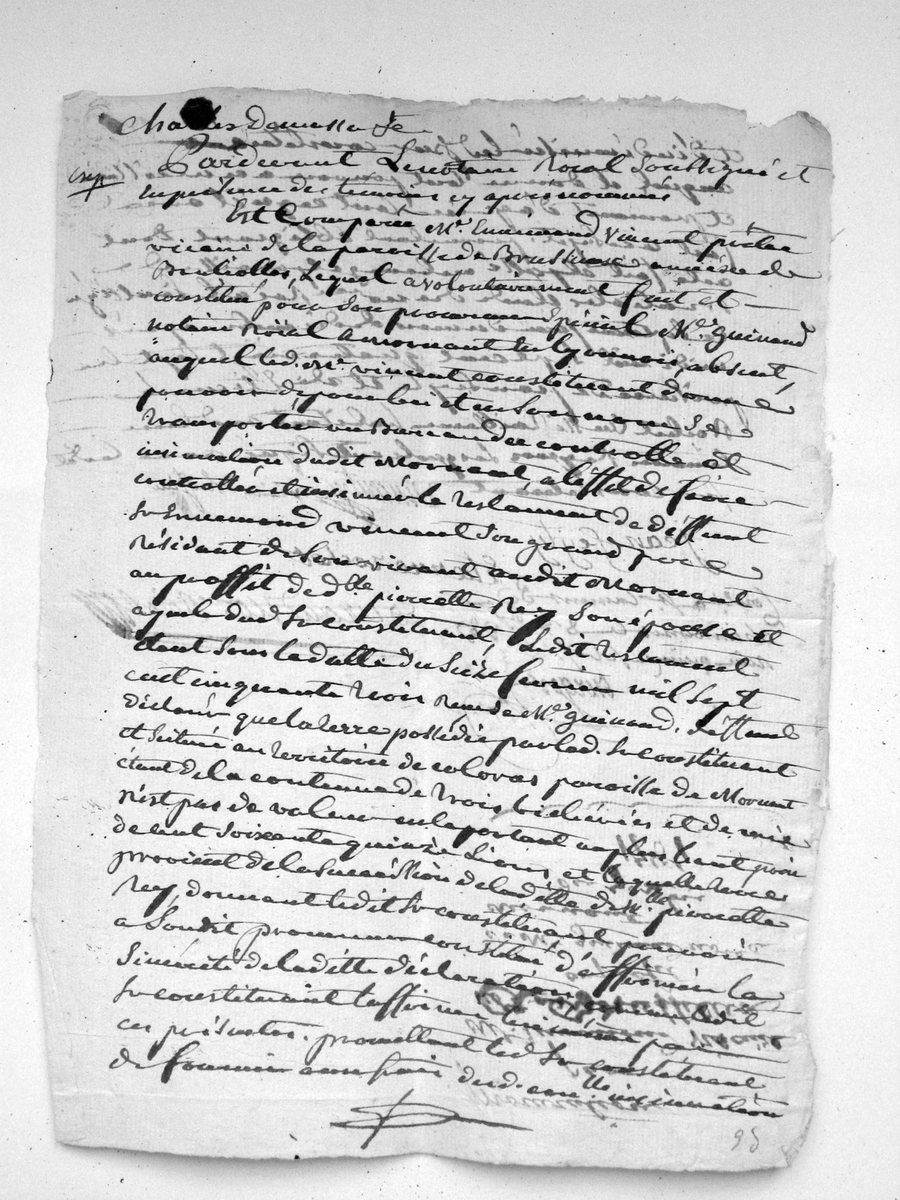 Pardevant Le notaire Roial Soussigné et
en présence des temoins cy apres nommés
Exp
Est Comparu Mr. Ennemond Vincent prêtre
vicaire de la paroisse de annéxe de
Lequel a volontairement fait et
constitué pour Son procureur Spécial Me. guinand
notaire Roial a mornant En lyonnois, absent,
auquel led. Mr. vincent constituant donne
pouvoir de pour lui et en Son nom Se
transporter au Bureau du controlle et
insinuation dudit Mornant, a l'effet de faire
controller et insinuer le testament de déffunt
Sr Ennemond vincent Son grand pere
Résidant de Son vivant audit Mornant
au proffit de dlle. pierrette Rey Son épouse et
ayeule dud Sr constituant, Ledit testament
étant Sous la datte du Seize fevrier mil Sept
cent cinquante trois Reçu de Me. guinand,
déclarer que la terre possédée par led. Sr constituant
et Située au territoire de coloras paroisse de Mornant
étant de la contenue de trois bicherées et demie
n'est pas de valeur en la portant au plus haut prix
de cent Soixante quinze Livres, et laquelle terre
provient de la Succéssion de laditte dlle. pierrette
Rey, donnant ledit Sr constituant pouvoir
a Sondit procureur constitué d'affirmer la
Sincérité de laditte déclaration
Sr constituant l'affirme par
ces présentes. promettant led Sr constituant
de fournir aux frais desd. conlle. insinuation
95